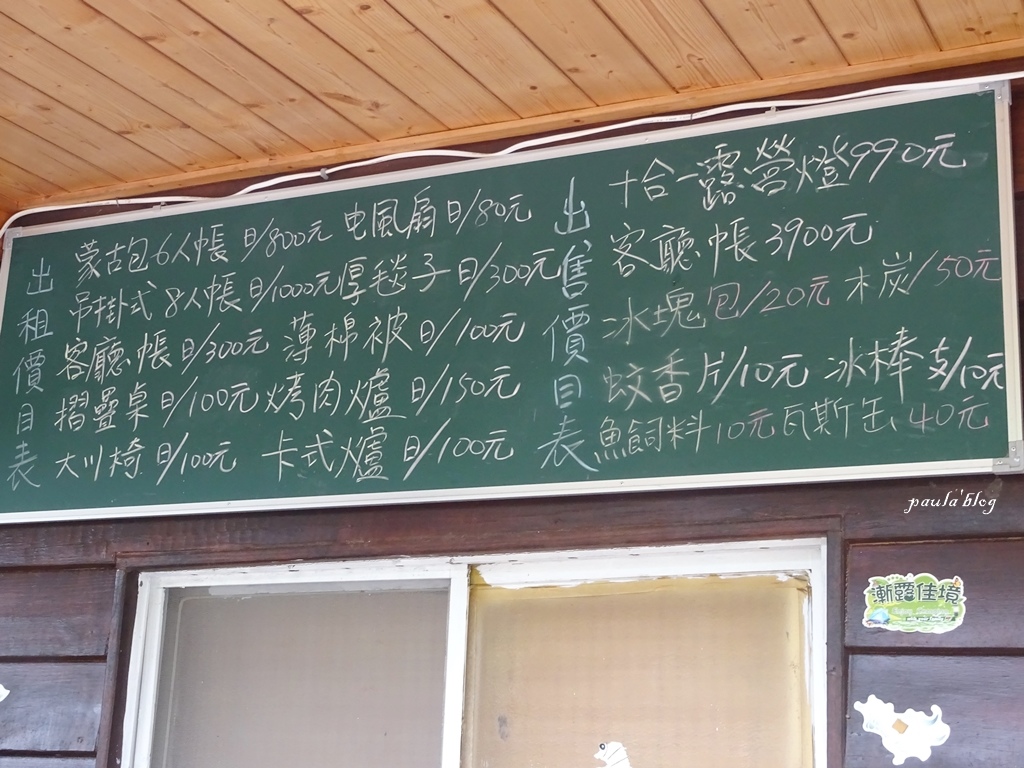 出租價目表
蒙古包6人帳 日/800元 电風扇 日/80元
吊掛式 8人帳 日/1000元 厚毯子 日/300元
客廳帳 日/300元 薄棉被 日/100元
摺疊桌 日/100元 烤肉爐 日/150元
大川椅 日/100元 卡式爐 日/100元
出售價目表
十合一露營燈990元
客廳帳 3900元
冰塊包/20元 木炭/50元
蚊香片/10元 冰棒支/10元
魚飼料10元 瓦斯缶 40元
paula'blog
漸露佳境